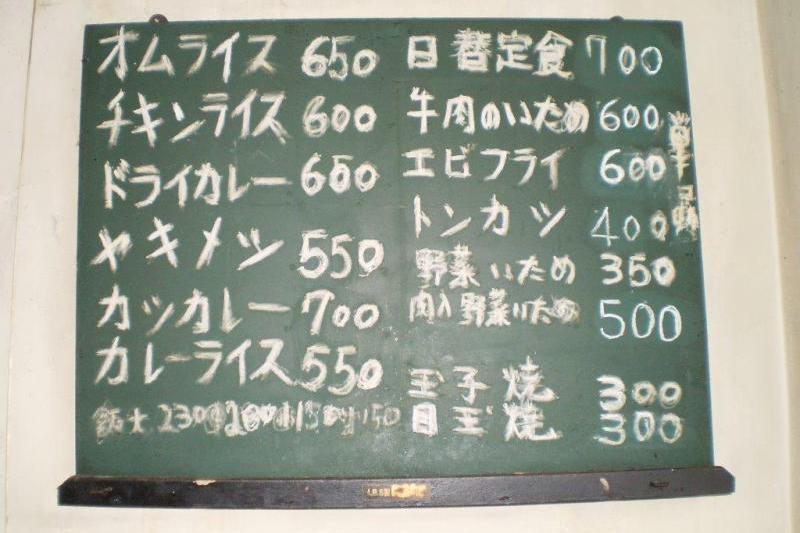 オムライス 650
チキンライス 600
ドライカレー 600
ヤキメシ 550
カツカレー 700
カレーライス 550
飯大 230
日替定食 700
牛肉のいため 600
エビフライ 600
トンカツ 400
野菜いため 350
肉入野菜いため 500
玉子焼 300
目玉焼 300